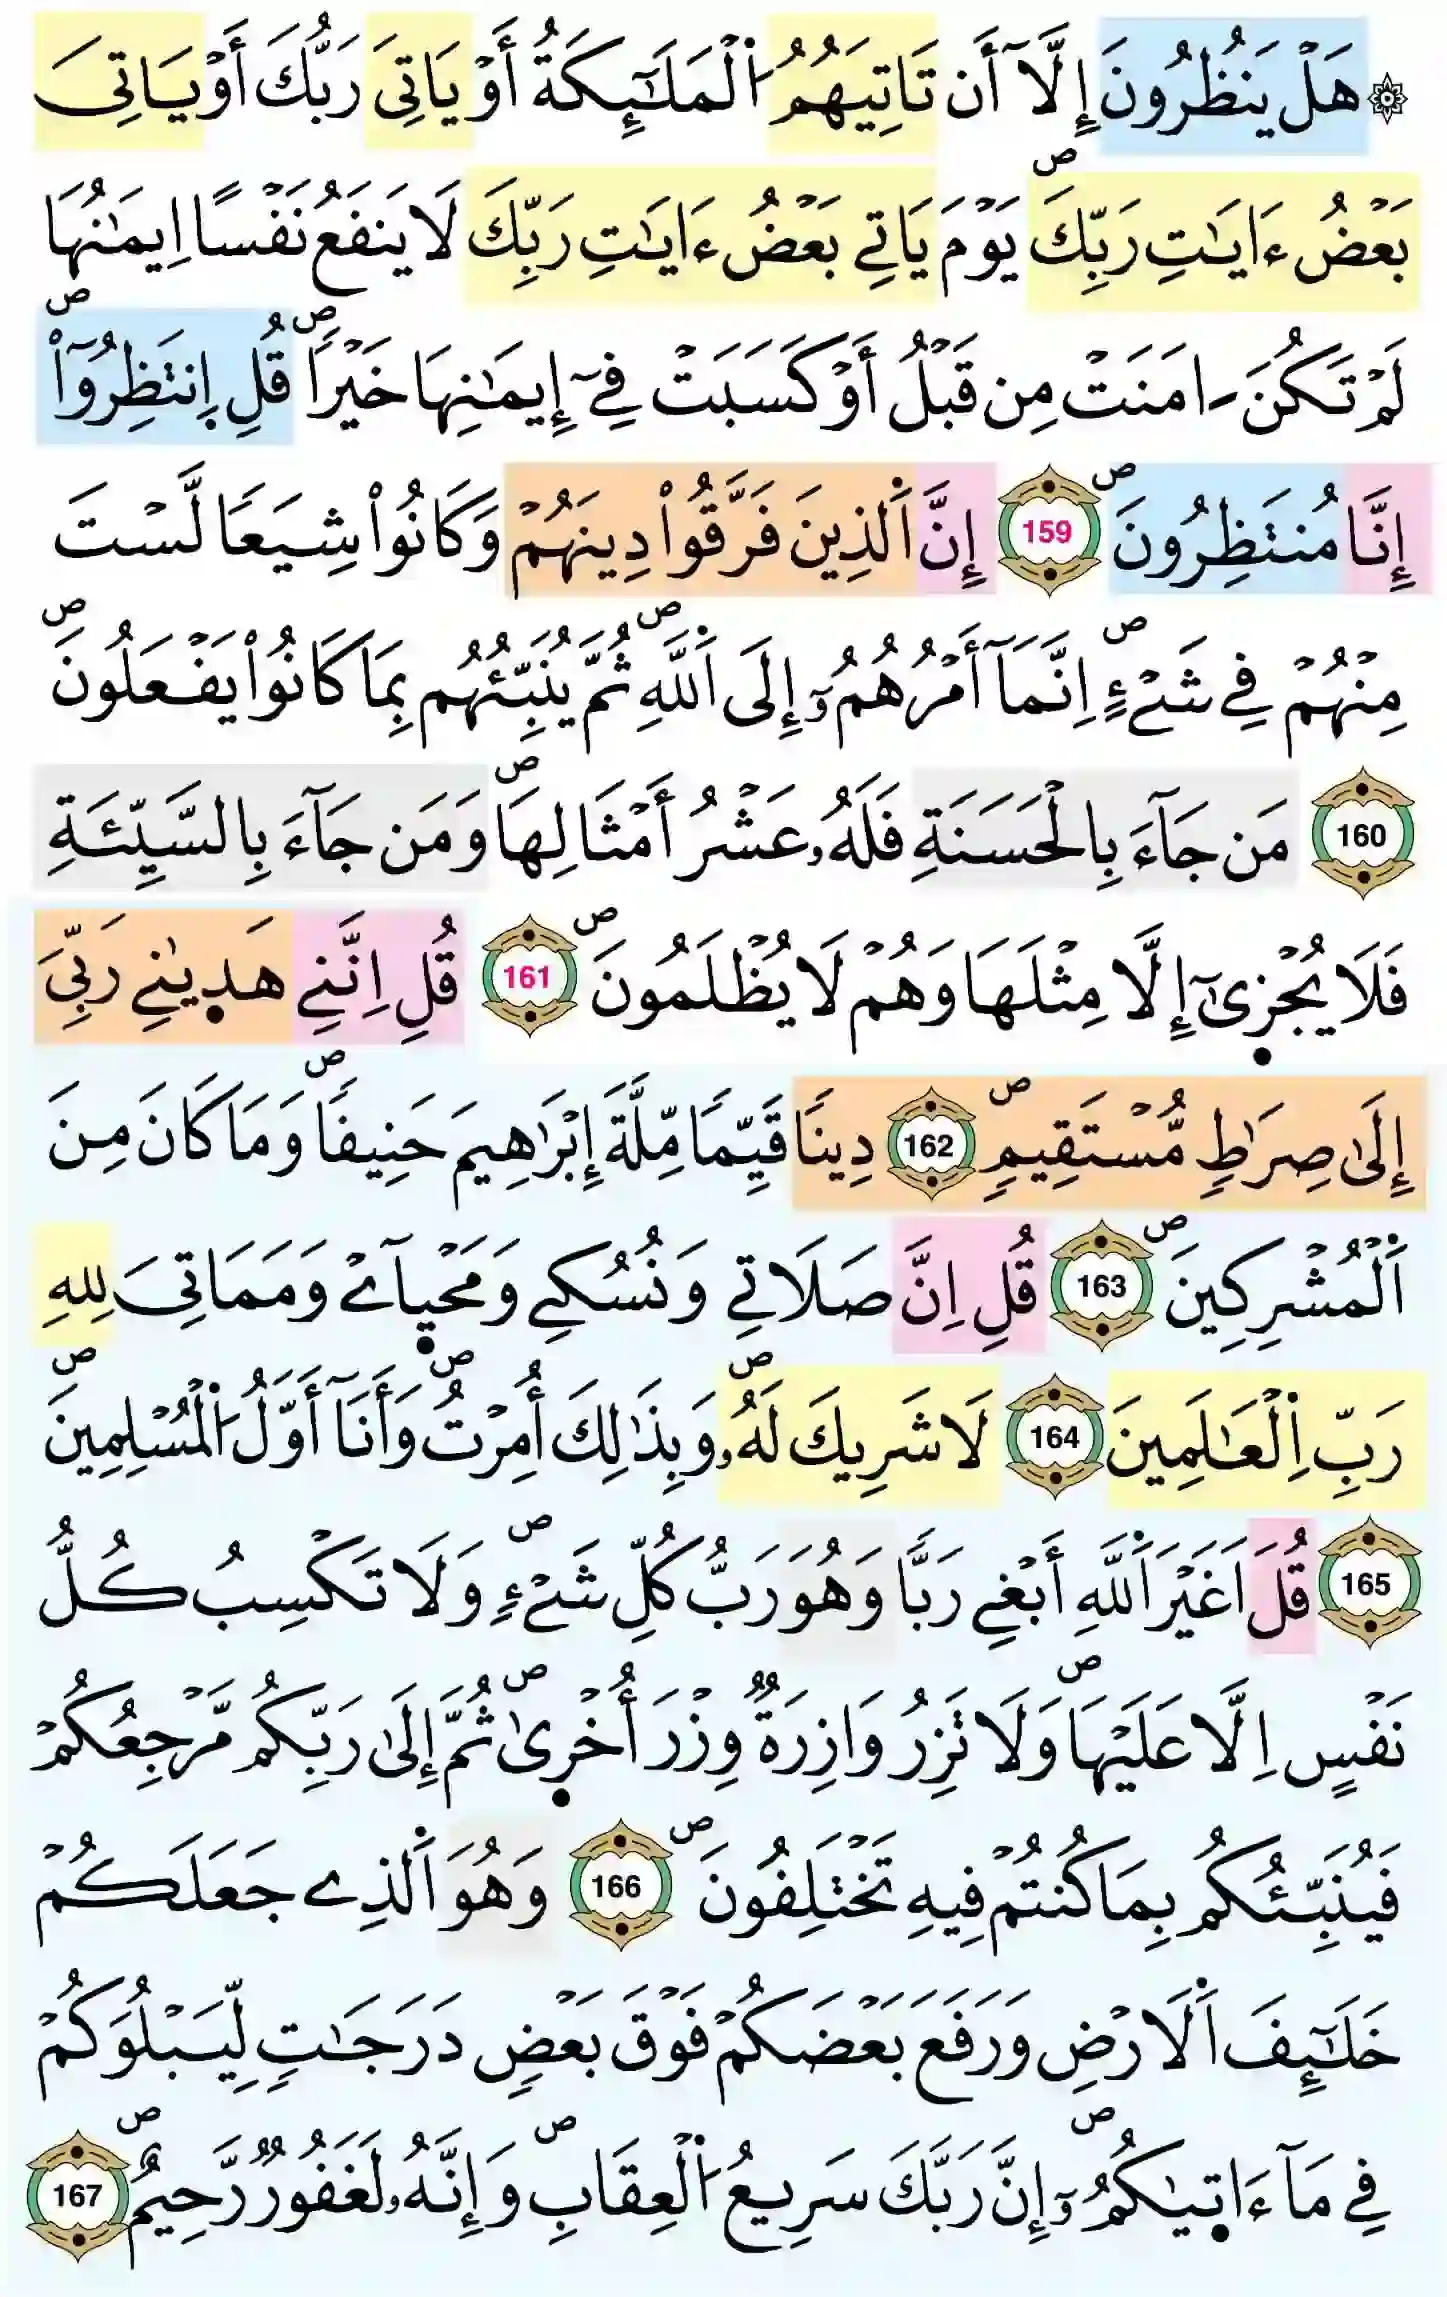 ۞ هَلْ يَنظُرُونَ إِلَّآ أَن تَاتِيَهُمُ اُ۬لْمَلَٰٓئِكَةُ أَوْ يَاتِيَ رَبُّكَ أَوْ يَاتِيَ
بَعْضُ ءَايَٰتِ رَبِّكَۖ يَوْمَ يَاتِے بَعْضُ ءَايَٰتِ رَبِّكَ لَا يَنفَعُ نَفْساً اِيمَٰنُهَا
لَمْ تَكُنَ اٰمَنَتْ مِن قَبْلُ أَوْ كَسَبَتْ فِےٓ إِيمَٰنِهَا خَيْراٗۖ قُلِ اِ۪نتَظِرُوٓاْۖ
إِنَّا مُنتَظِرُونَۖ 159 إِنَّ اَ۬لذِينَ فَرَّقُواْ دِينَهُمْ وَكَانُواْ شِيَعاٗ لَّسْتَ
مِنْهُمْ فِے شَےْءٍۖ اِنَّمَآ أَمْرُهُمُۥٓ إِلَى اَ۬للَّهِۖ ثُمَّ يُنَبِّئُهُم بِمَا كَانُواْ يَفْعَلُونَۖ
160 مَن جَآءَ بِالْحَسَنَةِ فَلَهُۥ عَشْرُ أَمْثَالِهَاۖ وَمَن جَآءَ بِالسَّيِّئَةِ
فَلَا يُجْز۪ىٰٓ إِلَّا مِثْلَهَا وَهُمْ لَا يُظْلَمُونَۖ 161 قُلِ اِنَّنِے هَد۪يٰنِے رَبِّيَ
إِلَىٰ صِرَٰطٖ مُّسْتَقِيمٖۖ 162 دِيناٗ قَيِّماٗ مِّلَّةَ إِبْرَٰهِيمَ حَنِيفاٗۖ وَمَا كَانَ مِنَ
اَ۬لْمُشْرِكِينَۖ 163 قُلِ اِنَّ صَلَاتِے وَنُسُكِے وَمَحْي۪آےْ وَمَمَاتِيَ لِلهِ
رَبِّ اِ۬لْعَٰلَمِينَ 164 لَا شَرِيكَ لَهُۥۖ وَبِذَٰلِكَ أُمِرْتُۖ وَأَنَآ أَوَّلُ اُ۬لْمُسْلِمِينَۖ
165 قُلَ اَغَيْرَ اَ۬للَّهِ أَبْغِے رَبّاٗ وَهُوَ رَبُّ كُلِّ شَےْءٖۖ وَلَا تَكْسِبُ كُلُّ
نَفْسٍ اِلَّا عَلَيْهَاۖ وَلَا تَزِرُ وَازِرَةٞ وِزْرَ أُخْر۪ىٰۖ ثُمَّ إِلَىٰ رَبِّكُم مَّرْجِعُكُمْ
فَيُنَبِّئُكُم بِمَا كُنتُمْ فِيهِ تَخْتَلِفُونَۖ 166 وَهُوَ اَ۬لذِے جَعَلَكُمْ
خَلَٰٓئِفَ اَ۬لَارْضِ وَرَفَعَ بَعْضَكُمْ فَوْقَ بَعْضٖ دَرَجَٰتٖ لِّيَبْلُوَكُمْ
فِے مَآ ءَات۪يٰكُمُۥٓۖ إِنَّ رَبَّكَ سَرِيعُ اُ۬لْعِقَابِۖ وَإِنَّهُۥ لَغَفُورٞ رَّحِيمٌۖ 167